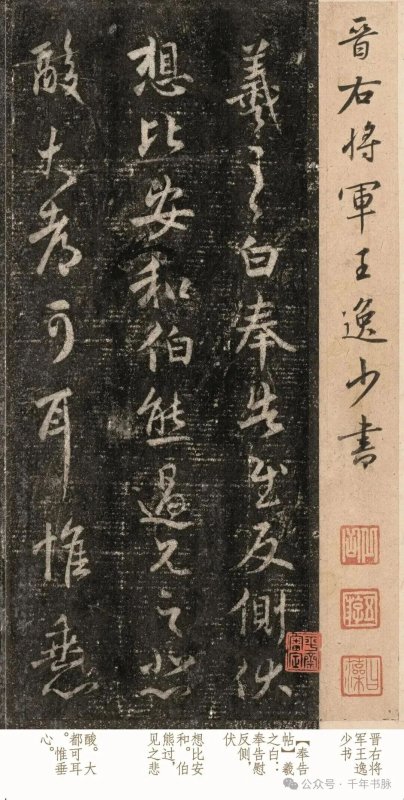 晉右将軍王逸少書
羲之白奉告慰反側伏
想比安和伯熊過見之悲
酸大都可耳惟垂心
晋右将
军王逸
少书
【奉告
帖】羲
之白：
奉告慰
反侧，
伏
想比安
和。伯
熊过，
见之悲
酸。大
都可耳
。惟垂
心。
公众号 · 千年书脉